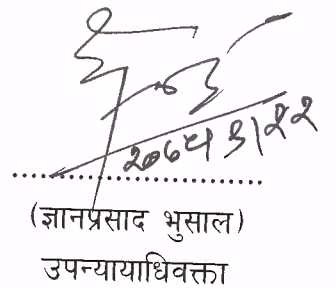 २०७५।३।२२
(ज्ञानप्रसाद भुसाल)
उपन्यायाधिवक्ता